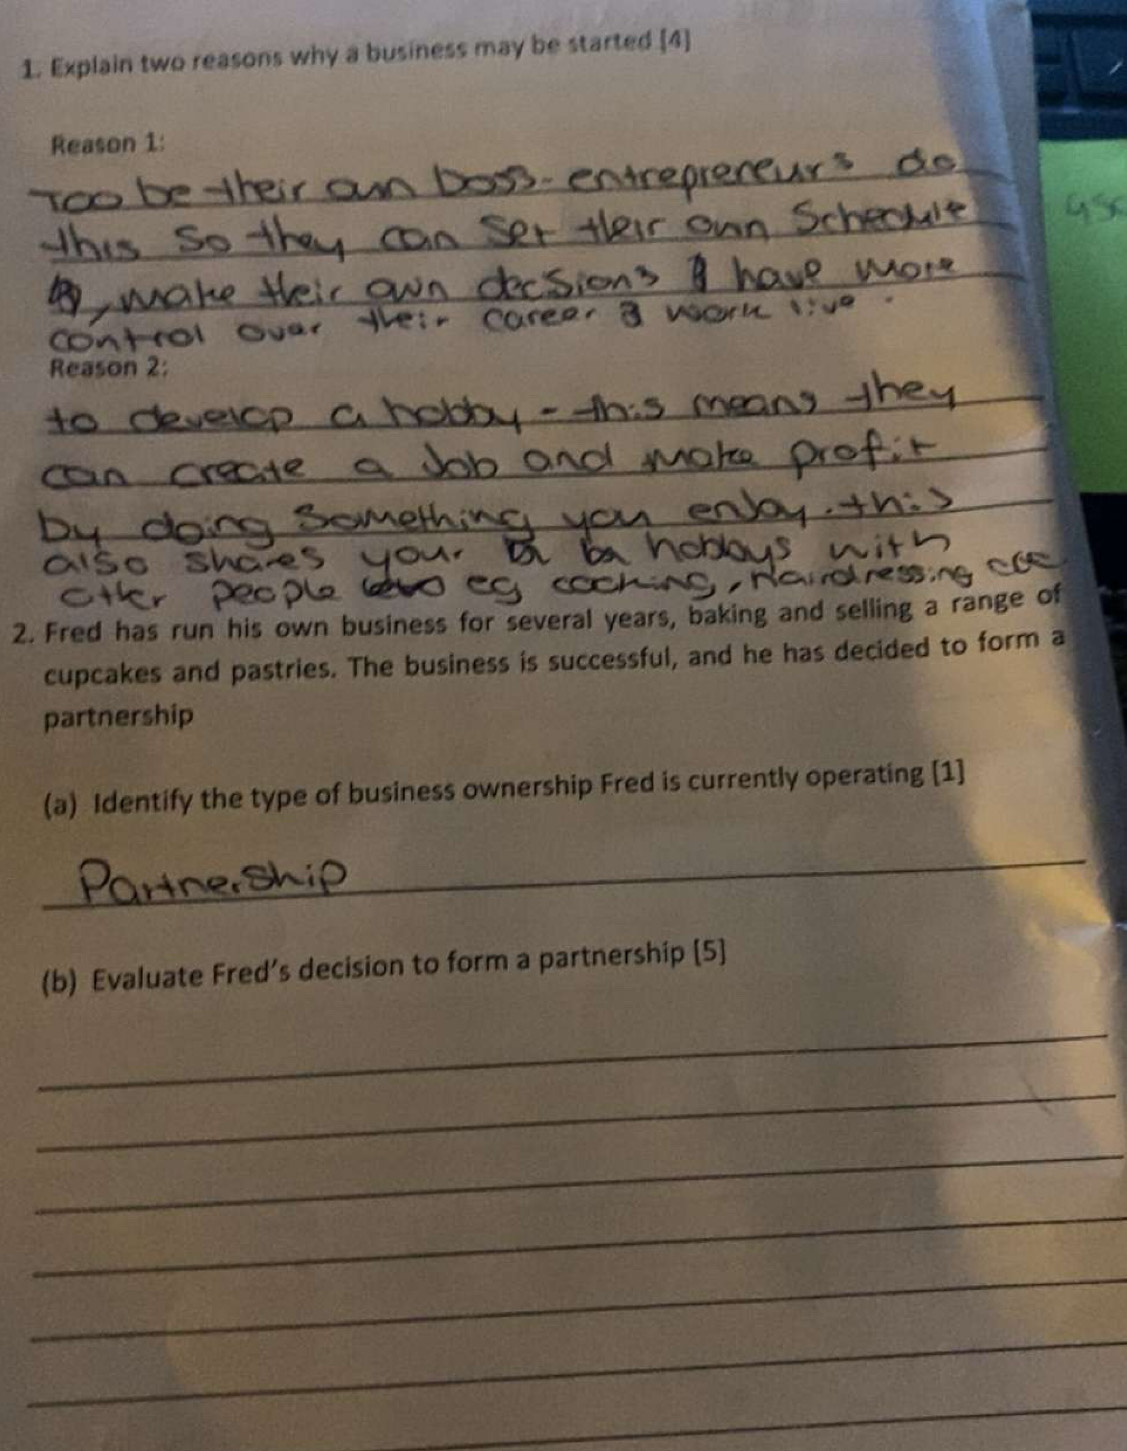 1. Explain two reasons why a business may be started [4]
Reason 1:
Too be their own boss - entrepreneurs do
this so they can set their own schedule
, make their own decsions & have more
control over their career & work live.
Reason 2:
to develop a hobby - this means they
can create a Job and make profit
by doing something you enjoy. this
also shares your hobbys with
other people eg coching, Hairdressing
2. Fred has run his own business for several years, baking and selling a range of
cupcakes and pastries. The business is successful, and he has decided to form a
partnership
(a) Identify the type of business ownership Fred is currently operating [1]
Partnership
(b) Evaluate Fred's decision to form a partnership [5]